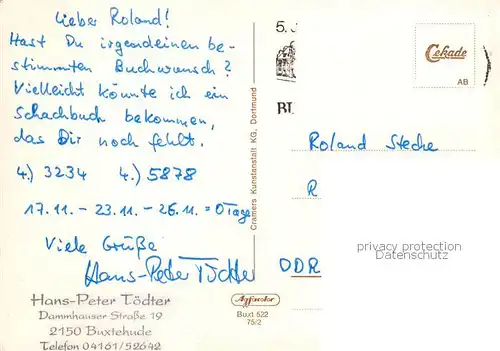 Lieber Roland!
Hast Du irgendeinen be-
stimmten Buchwunsch?
Vielleicht könnte ich ein
Schachbuch bekommen,
das Dir noch fehlt.
4.) 3234 4.) 5878
17.11. – 23.11. – 26.11. = 0 Tage
Viele Grüße
Hans-Peter Tödter
Hans-Peter Tödter
Dammhauser Straße 19
2150 Buxtehude
Telefon 04161/52642
Cramers Kunstanstalt KG, Dortmund
5. J
BU
Cekade
AB
Roland Stecke
R
ODR
privacy protection
Datenschutz
Buxt 522
75/2